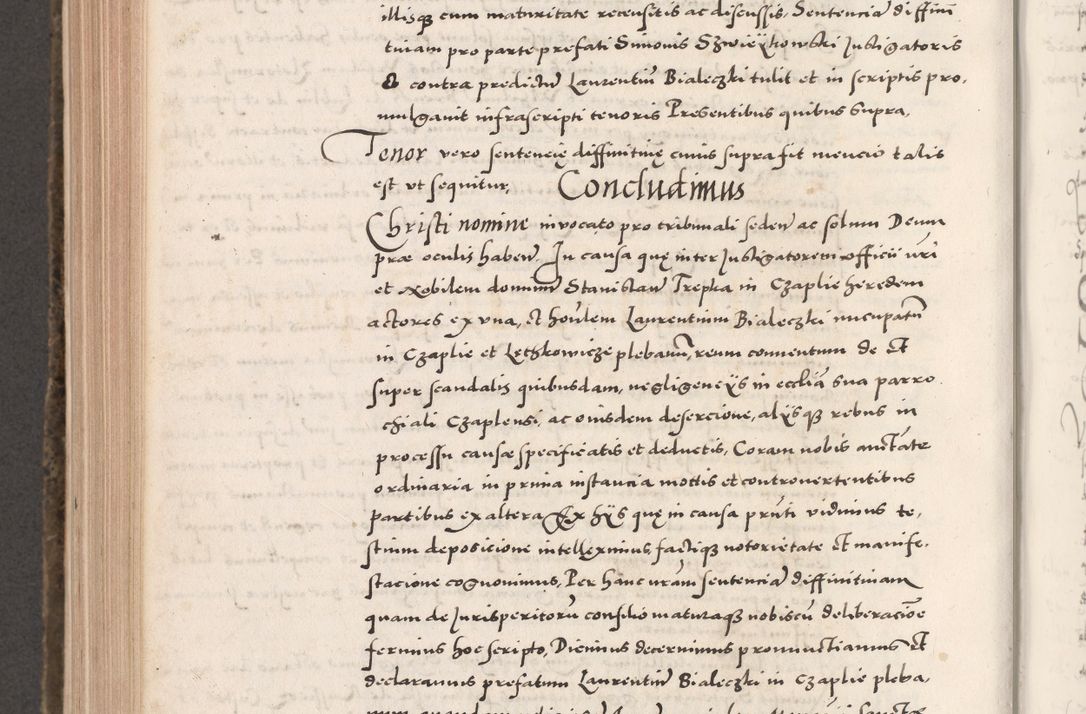 illisq cum maturitate recensitis ac discussis, Sentenciā diffini
tiuam pro parte prefati Simonis Szwieykowski Justigatoris
& contra predictū Laurentiū Bialeczki tulit et in scriptis pro,
mulgauit infrascripti tenoris Presentibus quibus Supra,
Tenor vero sentencię diffinitiuę cuius supra fit mencio talis
est vt sequitur, Concludimus
Christi nomine inuocato pro tribunali seden ac solum Deum
præ oculis haben. In causa quę inter Justigatorem officii nri
et Nobilem domum Stanislaū Trepka in Czaplie heredem
actores ex vna, et honlem Laurentium Bialeczki nucupatū
in Czaplie et Lethkowicze plebanū, reum conuentum de et
super scandalis quibusdam, negligencys in ecclia sua parro
chiali Czaplensi, ac eiusdem desercione, alysq rebus in
processu causæ specificatis et deductis, Coram nobis auctate
ordinaria in prima instancia motis et controuertentibus
partibus ex altera, Ex hys quę in causa prnti vidimus te,
stium deposicione intelleximus, factiq notorietate et manife,
stacione cognouimus, Per hanc nram sentenciā diffinitiuam
quam de Jurisperitorū consilio maturaq nobiscū deliberacioe
ferimus hoc scripto, Dicimus decernimus pronuctiamus et
declaramus prefatum Laurentiū Bialeczki in Czaplie pleba,